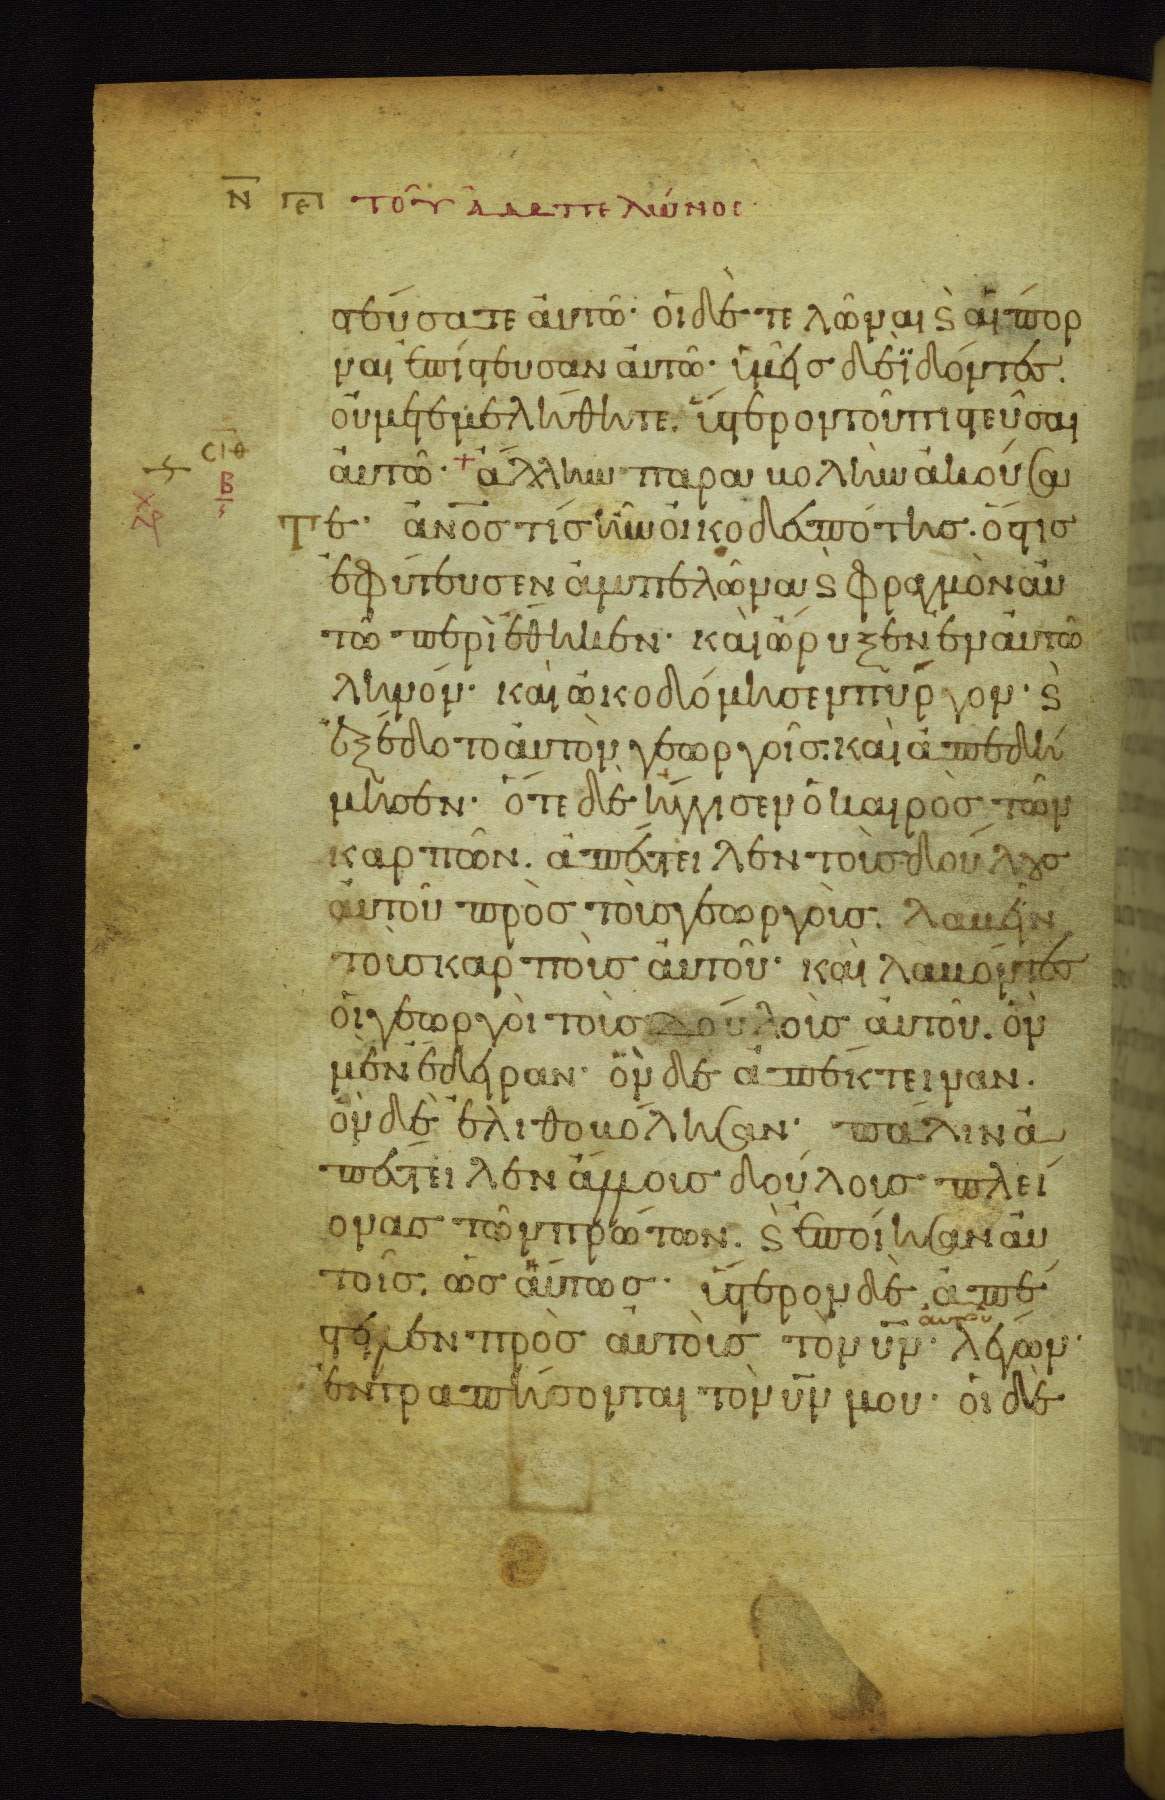 Ν ΓΕΓ τοῦ ἀμπελῶνος
στεύσατε αὐτῶ· οἱ δὲ τελῶναι ϗ αἱ πόρ
ναι ἐπίστευσαν αὐτῶ· ὑμεῖς δὲ ἰδόντες.
οὐ μετεμελήθητε. ὕστερον τοῦ πιστεῦσαι
αὐτῶ· + ἄλλην παραβολὴν ἀκούσα
CΙΘ
Β
ς
τε· ἀνος τίς ἦν οἰκοδεσπότης. ὅστις
ἐφύτευσεν ἀμπελῶνα ϗ φραγμὸν αὐ
τῶ περιέθηκεν· καὶ ὤρυξεν ἐν αὐτῶ
ληνόν· καὶ ὠκοδόμησεν πύργον· ϗ
ἐξέδοτο αὐτὸν γεωργοῖς. καὶ ἀπεδή
μησεν· ὅτε δὲ ἤγγισεν ὁ καιρὸς τῶν
καρπῶν. ἀπέστειλεν τοὺς δούλους
αὐτοῦ πρὸς τοὺς γεωργοὺς. λαβεῖν
τοὺς καρποὺς αὐτοῦ· καὶ λαβόντες
οἱ γεωργοὶ τοὺς δούλους αὐτοῦ. ὃν
μὲν ἔδειραν· ὃν δὲ ἀπέκτειναν.
ὃν δὲ ἐλιθοβόλησαν· πάλιν ἀ
πέστειλεν ἄλλους δούλους πλεί
ονας τῶν πρώτων. ϗ ἐποίησαν αὐ
τοῖς. ὡς αὕτως· ὕστερον δὲ ἀπέ
στειλεν πρὸς αὐτοὺς τὸν υν αὐτοῦ· λέγων·
ἐντραπήσονται τὸν υν μου· οἱ δὲ